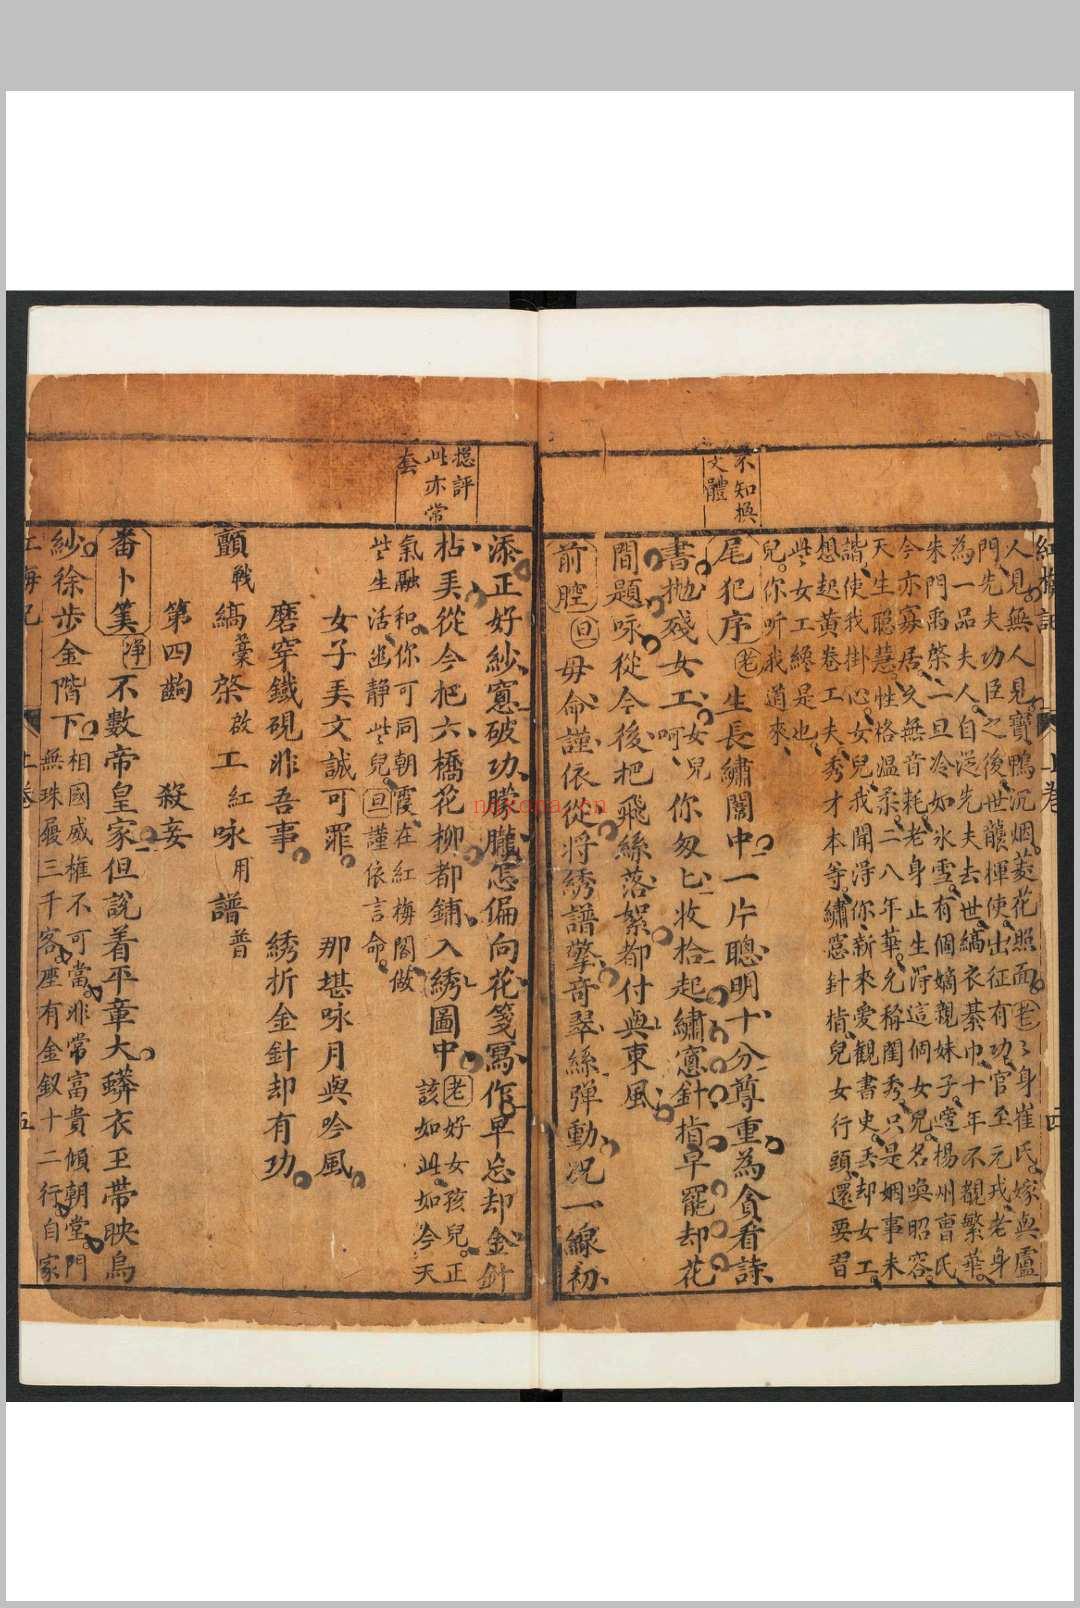 不知換
文體
紅梅記 上卷 四
人見無人見寶鴨沉烟菱花照面老身崔氏嫁與盧
門先夫功臣之後世襲揮使出征有功官至元戎老身
為一品夫人自從先夫去世縞衣綦巾十年不覩繁華
朱門禹棨一旦冷如氷雪有個嫡親妹子嫁楊州曹氏
今亦寡居久無音耗老身止生淂這個女兒名喚昭容
天生聰慧性格温柔二八年華允稱閨秀只是姻事未
諧使我掛心女兒我聞淂你新來愛観書史丢却女工
想起黃卷工夫秀才本等繡窓針指兒女行頭還要習
些女工終是也
兒你听我道來
尾犯序老生長繡閣中一片聰明十分尊重為貪看詩
書拋殘女工呵女兒你匆匕收拾起繡窓針指早罷却花
間題咏從今後把飛絲落絮都付與東風
前腔旦母命謹依從將綉譜擎奇翠絲弹動况一線初
總評
此亦常
套
添正好紗窓破功朦朧怎偏向花箋寫作早忘却金針
枯美從今把六橋花柳都鋪入綉圖中老好女孩兒正該如此如今天
氣融和你可同朝霞在紅梅閣做
些生活幽静些兒旦謹依言命
女子美文誠可罪 那堪咏月與吟風
磨穿鐵硯非吾事 綉折金針却有功
顫戰 縞棨啟 工紅 咏用 譜普
第四齣 殺妾
番卜筭淨不數帝皇家但說着平章大蟒衣玉帶映烏
紗徐步金階下相國威権不可當非常富貴傾朝堂門
無珠履三千客座有金釵十二行自家
紅梅記 上卷 五